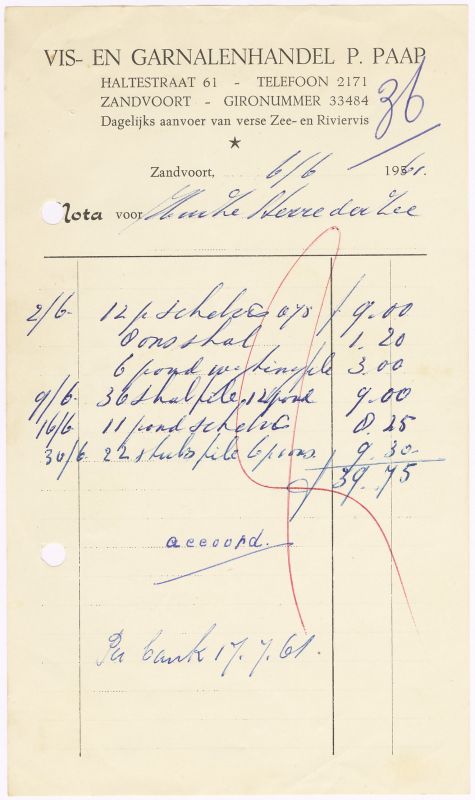 VIS- EN GARNALENHANDEL P. PAAP
HALTESTRAAT 61 - TELEFOON 2171
ZANDVOORT - GIRONUMMER 33484
Dagelijks aanvoer van verse Zee- en Riviervis
36
Zandvoort, 6/6 1961.
Nota voor Sterre der Zee
2/6 12 p schelvis 9.00
8 ons 1.20
6 pond 3.00
9/6 36 12 pond 9.00
16/6 11 pond schelvis 8.25
30/6 22 stuks file 6 pons 9.30
39.75
accoord.
Per bank 17.7.61.